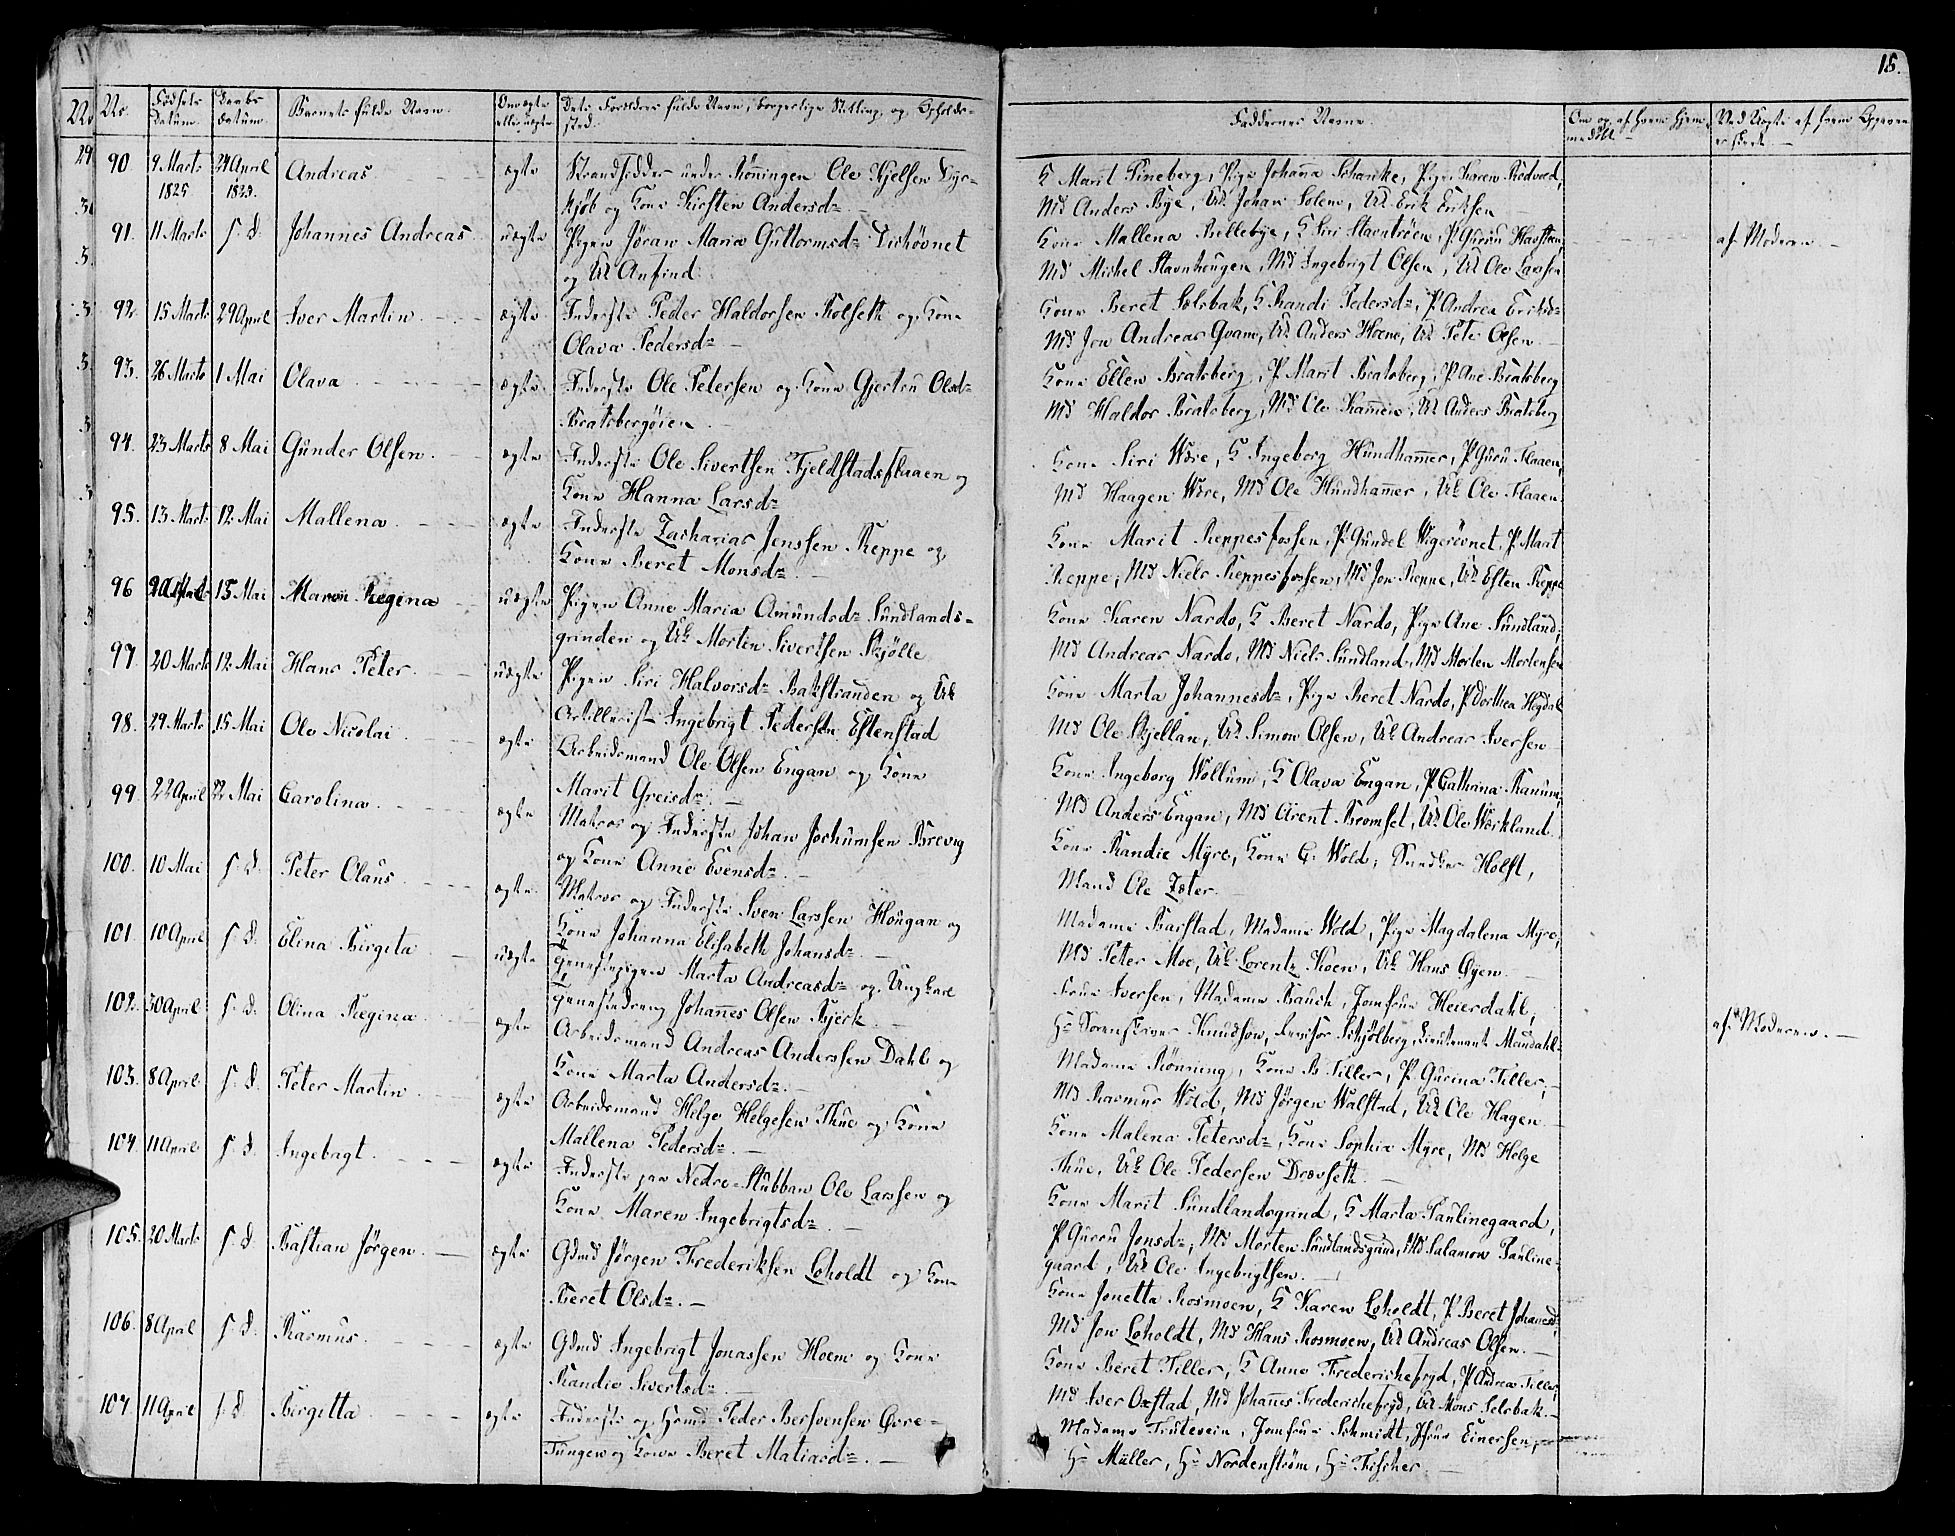 15.
No. Fødsels Datum. Daabs Datum. Barnets fulde Navn. Om ægte eller uægte Dets Forældres fulde Navn, borgerlige Stilling, og Opholds-
sted.
Faddernes Navne.
90. 9 Marts 1825 24 April 1825. Andreas ægte Strandsidder under Rönningen Ole Kjelsen Dyr-
kjöb og Kone Kirsten Andersd=
K Marit Pineberg, Pige Johanna Schancke, Pige Karen Rødvæd,
Md Anders Bye, Uk Johan Solem, Uk Erik Eriksen
91. 11 Marts s. d. Johannes Andreas uægte Pigen Jöran Maria Guttormsd=
og Uk Anfind
Kone Mallena Bellebye, K Siri Stavntröen, P Guru Havstein,
Md Michel Stavnhougen, Md Ingebrigt Olsen, Uk Ole Larsen
af Moderen
92. 15 Marts 29 April Iver Martin ægte Inderste Peder Haldorsen Rolseth og Kone
Olava Pedersd=
Kone Beret Solsbak, K Randi Pedersd=, P Andrea Eriksd=
Md Jon Andreas Qvam, Uk Anders Hoem, Uk Peter Olsen
93. 26 Marts 1 Mai Olava ægte Inderste Ole Petersen og Kone Gjertru Olsd=
Bratsbergöien
Kone Ellen Bratsberg, P Marit Bratsberg, P Ane Bratsberg
Md Haldor Bratsberg, Md Ole Kammen, Uk Anders Bratsberg
94. 23 Marts 8 Mai Gunder Olsen ægte Inderste Ole Sivertsen Fjeldstadsflaaen og
Kone Hanna Larsd=
Kone Siri Wæe, K Ingeborg Hundhammer, P Guru Flaaen,
Md Haagen Wære, Md Ole Hundhammer, Uk Ole Flaaen
95. 13 Marts 12 Mai Mallena ægte Inderste Zacharias Jenssen Reppe og
Kone Beret Monsd=
Kone Marit Reppesfossen, P Gundel Wigerövnet, P Marit
Reppe, Md Niels Reppesfossen, Md Jon Reppe, Uk Esten Reppe
96 15 Mai Maren Regina uægte Pigen Anne Maria Amundsd= Sundlands-
grinden og Uk Morten Sivertsen Skjölle
Kone Karen Nardo, K Beret Nardo, Pige Ane Sundland,
Md Andreas Nardo, Md Niels Sundland, Md Morten Mortensen
97 20 Marts 12 Mai Hans Peter uægte Pigen Siri Halvorsd= Bakstranden og Uk
Artillerist Ingebrigt Pedersen Estenstad
Kone Marta Johannesd=, Pige Beret Nardo, P Dorthea Hegdal
Md Ole Skjellan, Uk Simon Olsen, Uk Andreas Iversen
98. 29 Marts 15 Mai Ole Nicolai ægte Arbeidsmand Ole Olsen Engan og Kone
Marit Greisd=
Kone Ingeborg Wollum, K Olava Engan, P Cathrina Ranum,
Md Anders Engan, Md Arent Bromset, Uk Ole Werkland
99 22 April 22 Mai Carolina ægte Matros og Inderste Johan Jochumsen Brevig
og Kone Anne Evensd=
Kone Randie Myre, Kone G. Wold, Snedker Holst,
Mand Ole Zæter
100. 10 Mai s. d. Peter Olaus ægte Matros og Inderste Sven Larssen Hougan og
Kone Johanna Elisabeth Johansd=
Madame Barstad, Madame Wold, Pige Magdalena Myre,
Md Peter Moe, Uk Lorentz Koen, Uk Hans Öyen
101. 10 April s. d. Elina Birgita uægte Tjenestepigen Marta Andreasd= og Ungkarl
Tjenestedreng Johannes Olsen Bjerk
Frue Iversen, Madame Bauch, Jomfrue Heierdahl,
Hr Sorenskriver Knudson, Revisor Schjölberg, Lieutenant Maudahl
af Moderen.
102. 30 April s. d. Olina Regina ægte Arbeidsmand Andreas Anderssen Dahl og
Kone Marta Andersd=
Madame Rönning, Kone B Tiller, P Gurina Tiller,
Md Rasmus Wold, Md Jörgen Walstad, Uk Ole Hagen
103. 8 April s. d. Peter Martin ægte Arbeidsmand Helge Helgesen Thue og Kone
Mallena Pedersd=
Kone Malena Petersd=, Kone Sophie Myre, Md Helge
Thue, Uk Ole Pedersen Dravseth
104. 11 April s. d. Ingebrigt ægte Inderste paa Nedre-Stubban Ole Larssen og
Kone Maren Ingebrigtsd=
Kone Marit Sundlandsgrind, K Marta Paulinegaard,
P Guru Jonsd=, Md Morten Sundlandsgrind, Md Salamon Pauline-
gaard, Uk Ole Ingebrigtsen.
105. 20 Marts s. d. Bastian Jörgen ægte Gdmd Jörgen Frederiksen Loholdt og Kone
Beret Olsd=
Kone Jonetta Rosmoen, K Karen Loholdt, P Beret Johansd=,
Md Jon Loholdt, Md Hans Rosmoen, Uk Andreas Olsen.
106. 8 April s. d. Rasmus ægte Gdmd Ingebrigt Jonassen Hoem og Kone
Randie Sivertsd=
Kone Beret Tiller, K Anne Frederichsfryd, P Andrea Tiller,
Md Iver Oxstad, Md Johannes Frederichsfryd, Uk Mons Solsbak.
107. 11 April s. d. Birgitta ægte Inderste og Peder Bersvensen Övre-
Tungen og Kone Beret Matiasd=
Madame Trutevein, Jomfrue Schmidt, Jfrue Einersen,
Hr Müller, Hr Nordenström, Hr Fischer.